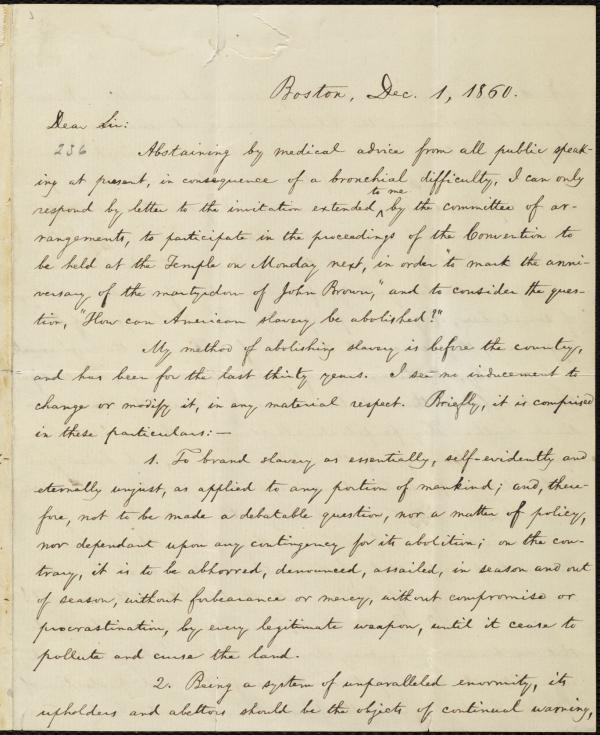 Boston, Dec. 1, 1860.
Dear Sir:
236 Abstaining by medical advice from all public speak-
ing at present, in consequence of a bronchial difficulty, I can only
to me
respond by letter to the invitation extended ^ by the committee of ar-
rangements, to participate in the proceedings of the Convention to
be held at the Temple on Monday next, in order "to mark the anni-
versary of the martyrdom of John Brown," and to consider the ques-
tion, "How can American slavery be abolished?"
My method of abolishing slavery is before the country,
and has been for the last thirty years. I see no inducement to
change or modify it, in any material respect. Briefly, it is comprised
in these particulars:—
1. To brand slavery as essentially, self-evidently and
eternally unjust, as applied to any portion of mankind; and, there-
fore, not to be made a debatable question, nor a matter of policy,
nor dependant upon any contingency for its abolition; on the con-
trary, it is to be abhorred, denounced, assailed, in season and out
of season, without forbearance or mercy, without compromise or
procrastination, by every legitimate weapon, until it cease to
pollute and curse the land.
2. Being a system of unparalleled enormity, its
upholders and abettors should be the objects of continual warning,